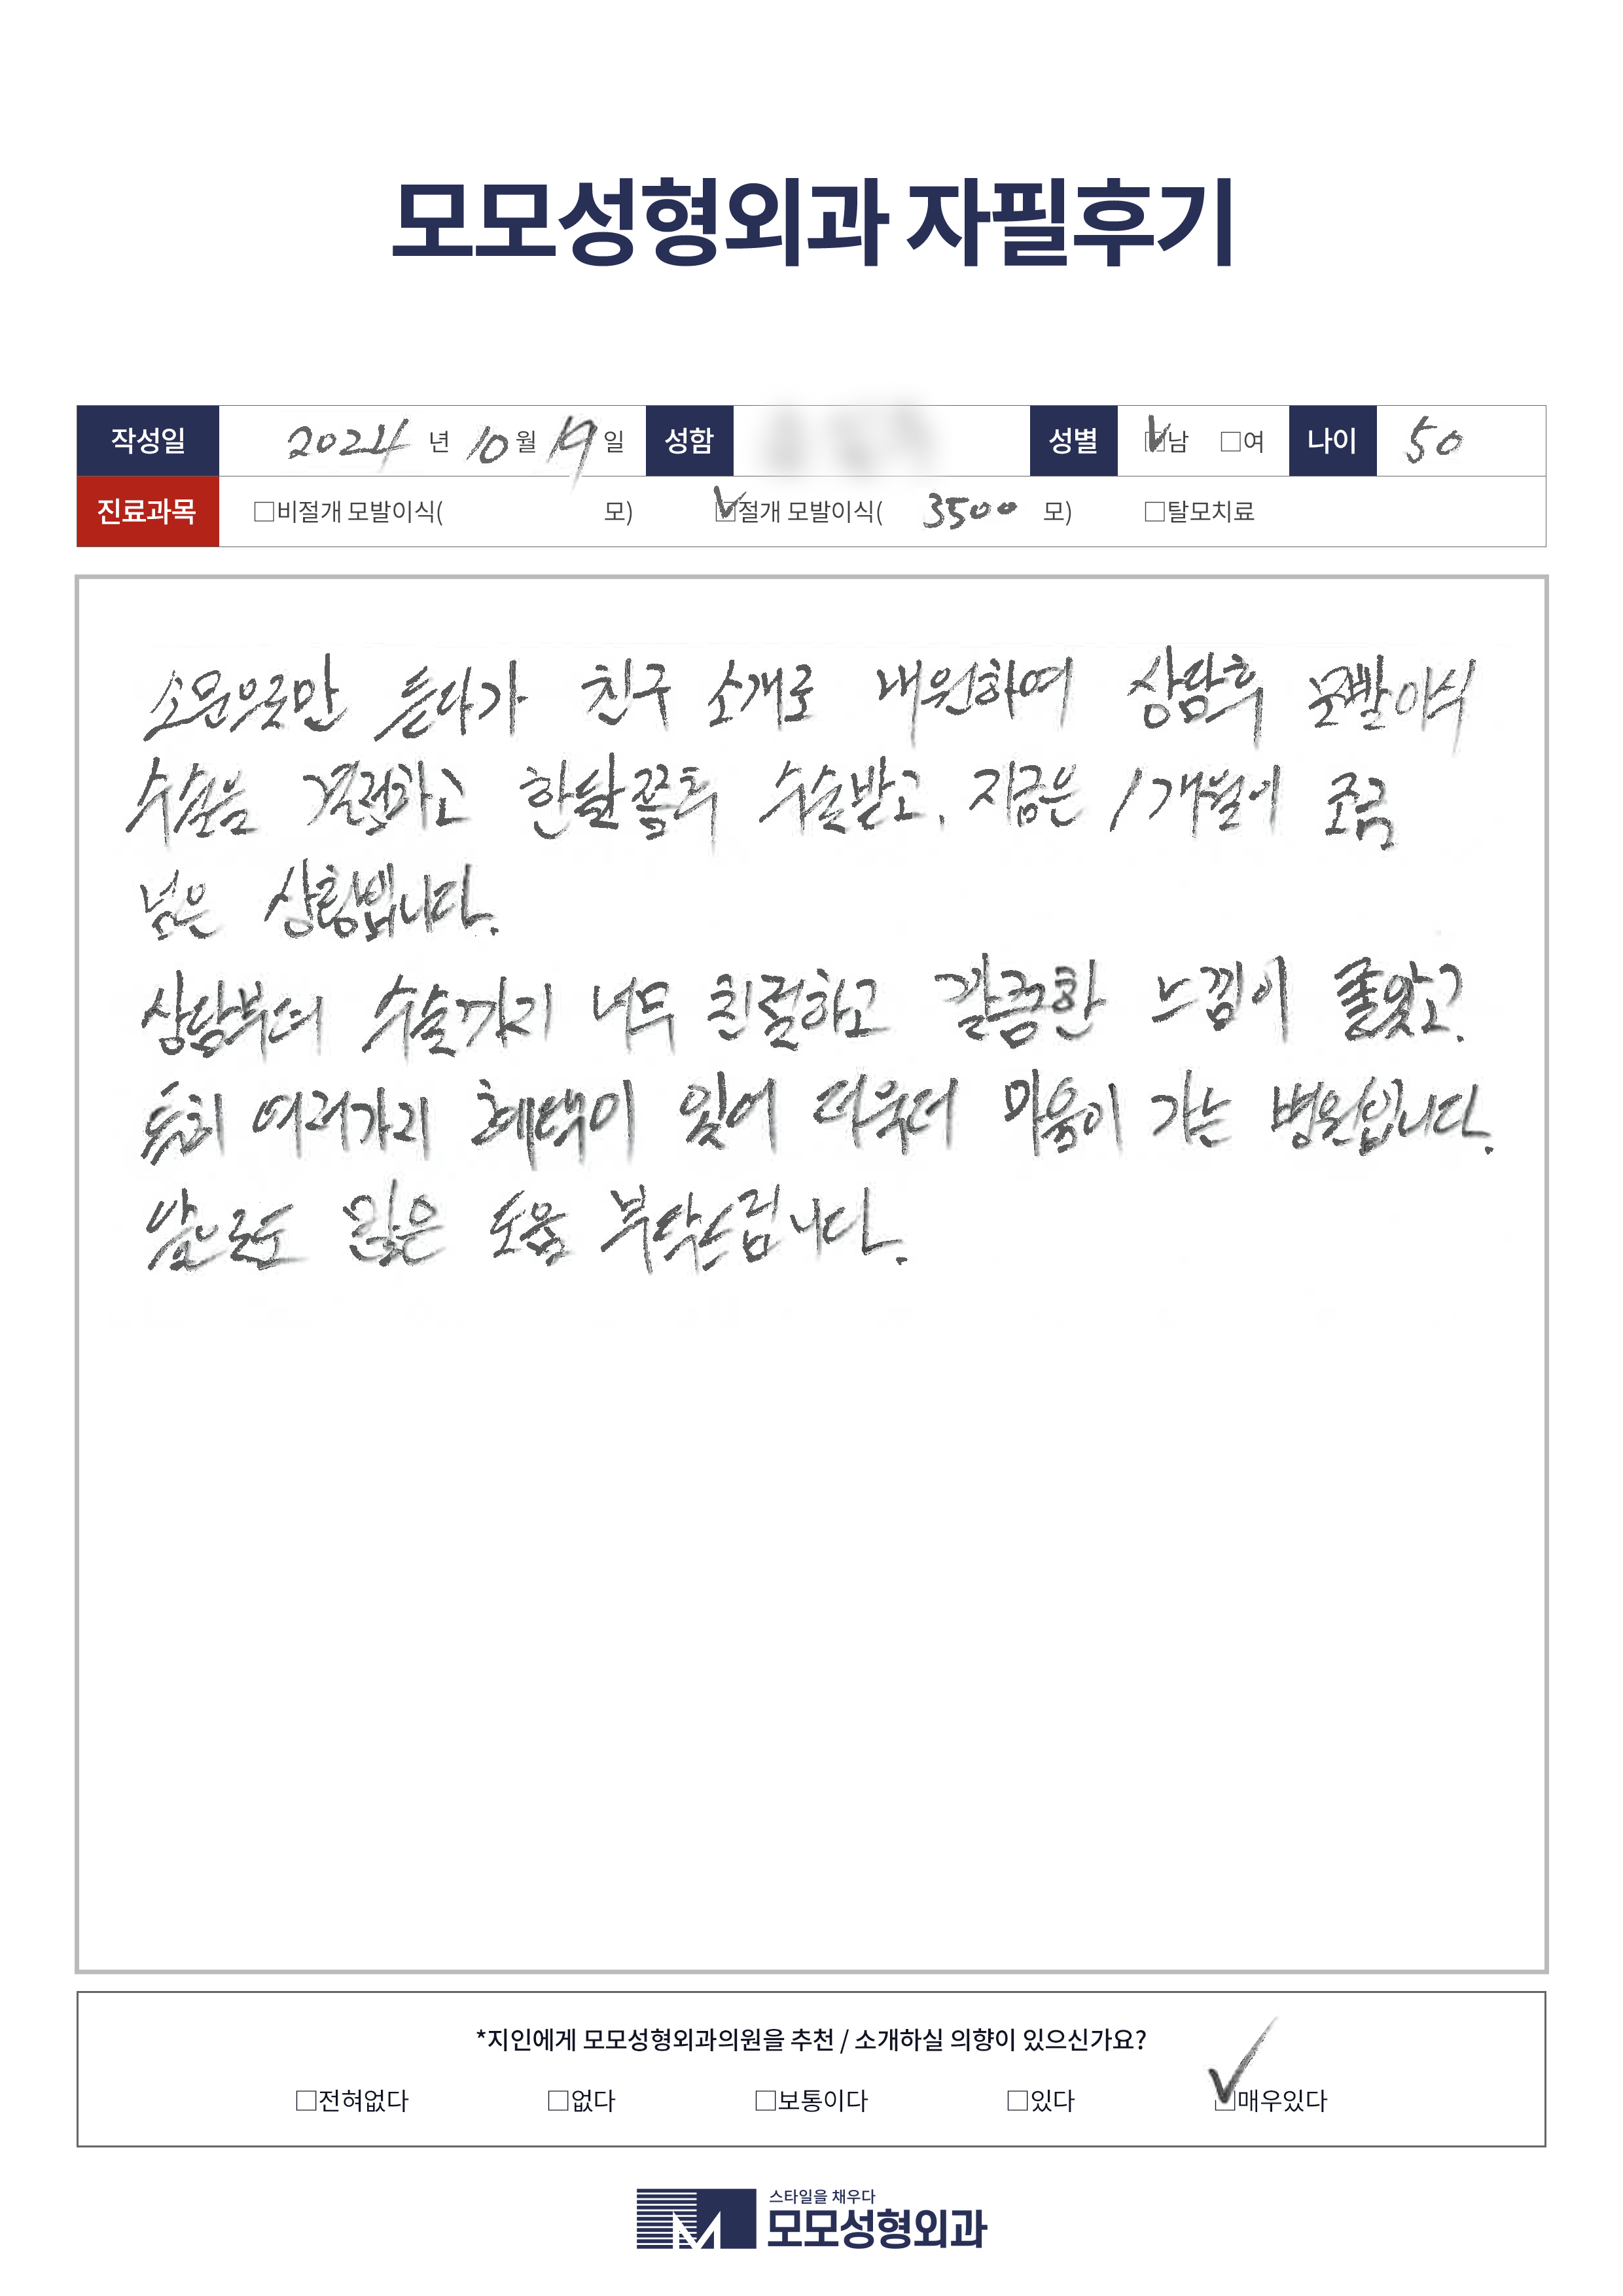 모모성형외과 자필후기
작성일 2024 년 10 월 19 일 성함 성별 ☑남 □여 나이 50
진료과목 □비절개 모발이식( 모) ☑절개 모발이식( 3500 모) □탈모치료
소문으로만 듣다가 친구 소개로 내원하여 상담후 모발이식
수술을 결정하고 한달쯤후 수술받고, 지금은 1개월이 조금
넘은 상황입니다.
상담부터 수술까지 너무 친절하고 깔끔한 느낌이 좋았고.
특히 여러가지 혜택이 있어 더욱더 마음이 가는 병원입니다.
앞으로도 많은 도움 부탁드립니다.
*지인에게 모모성형외과의원을 추천 / 소개하실 의향이 있으신가요?
□전혀없다 □없다 □보통이다 □있다 ☑매우있다
스타일을 채우다
모모성형외과